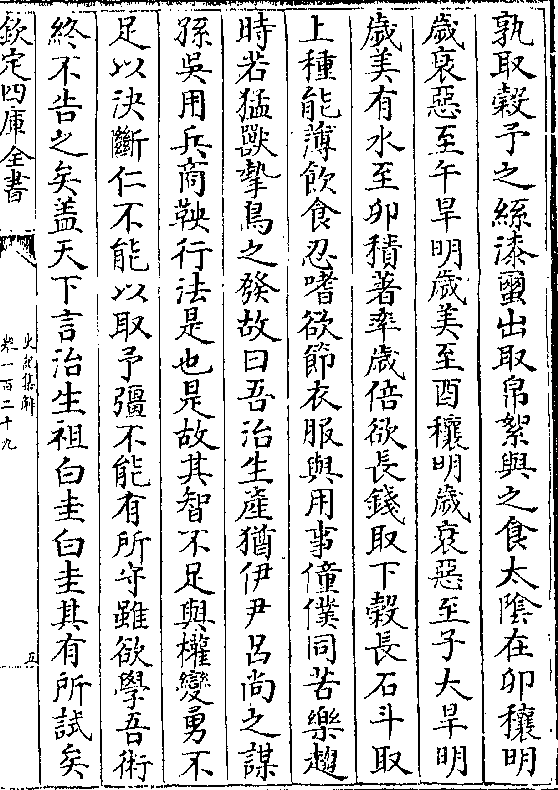 孰取穀予之絲漆璽出取帛絮與之食太陰在卯穰明
歲衰惡至午旱明歲美至酉穰明歲衰惡至子大旱明
歲美有水至卯積著率歲倍欲長錢取下穀長石斗取
上種能薄飲食忍嗜欲節衣服與用事僮僕同苦樂趨
時若猛獸摯鳥之發故曰吾治生產猶伊尹呂尚之謀
孫吳用兵商鞅行法是也是故其智不足與權變勇不
足以決斷仁不能以取予彊不能有所守雖欲學吾術
終不告之矣蓋天下言治生祖白圭白圭其有所試矣
欽定四庫全書
史記集解
卷一百二十九
五